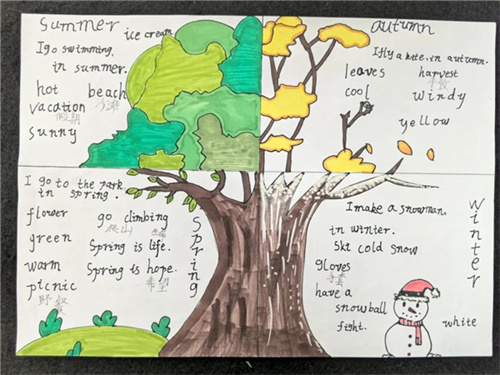 Summer
ice cream
I go swimming.
in summer.
hot beach
沙滩
vacation
假期
sunny
autumn
I fly a kite. in autumn.
leaves harvest
丰收
cool windy
yellow
I go to the park
in spring.
flower go climbing
爬山
green Spring is life.
生命
warm Spring is hope.
希望
picnic
野餐
Spring
I make a snowman.
in winter.
Ski cold snow
gloves
手套
have a
snowball
fight.
white
Winter